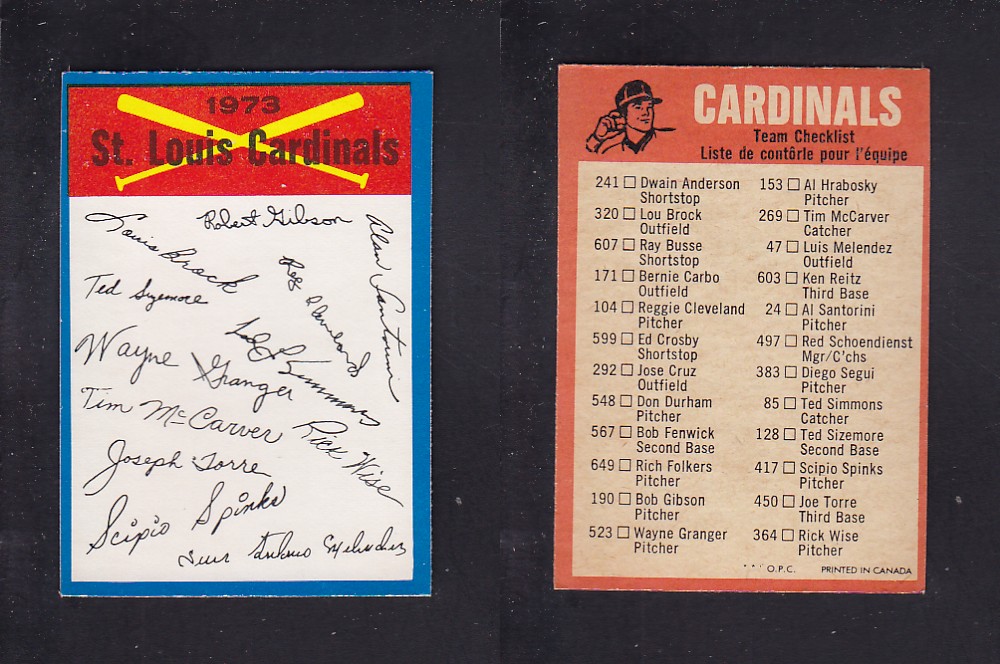 1973
St. Louis Cardinals
Robert Gibson
Louis Brock
Alan Santorini
Reg Cleveland
Ted Sizemore
Ted Simmons
Wayne Granger
Tim McCarver
Rick Wise
Joseph Torre
Scipio Spinks
Luis Antonio Melendez
CARDINALS
Team Checklist
Liste de contôrle pour l'équipe
241 □ Dwain Anderson
Shortstop
320 □ Lou Brock
Outfield
607 □ Ray Busse
Shortstop
171 □ Bernie Carbo
Outfield
104 □ Reggie Cleveland
Pitcher
599 □ Ed Crosby
Shortstop
292 □ Jose Cruz
Outfield
548 □ Don Durham
Pitcher
567 □ Bob Fenwick
Second Base
649 □ Rich Folkers
Pitcher
190 □ Bob Gibson
Pitcher
523 □ Wayne Granger
Pitcher
153 □ Al Hrabosky
Pitcher
269 □ Tim McCarver
Catcher
47 □ Luis Melendez
Outfield
603 □ Ken Reitz
Third Base
24 □ Al Santorini
Pitcher
497 □ Red Schoendienst
Mgr/C'chs
383 □ Diego Segui
Pitcher
85 □ Ted Simmons
Catcher
128 □ Ted Sizemore
Second Base
417 □ Scipio Spinks
Pitcher
450 □ Joe Torre
Third Base
364 □ Rick Wise
Pitcher
** O.P.C. PRINTED IN CANADA